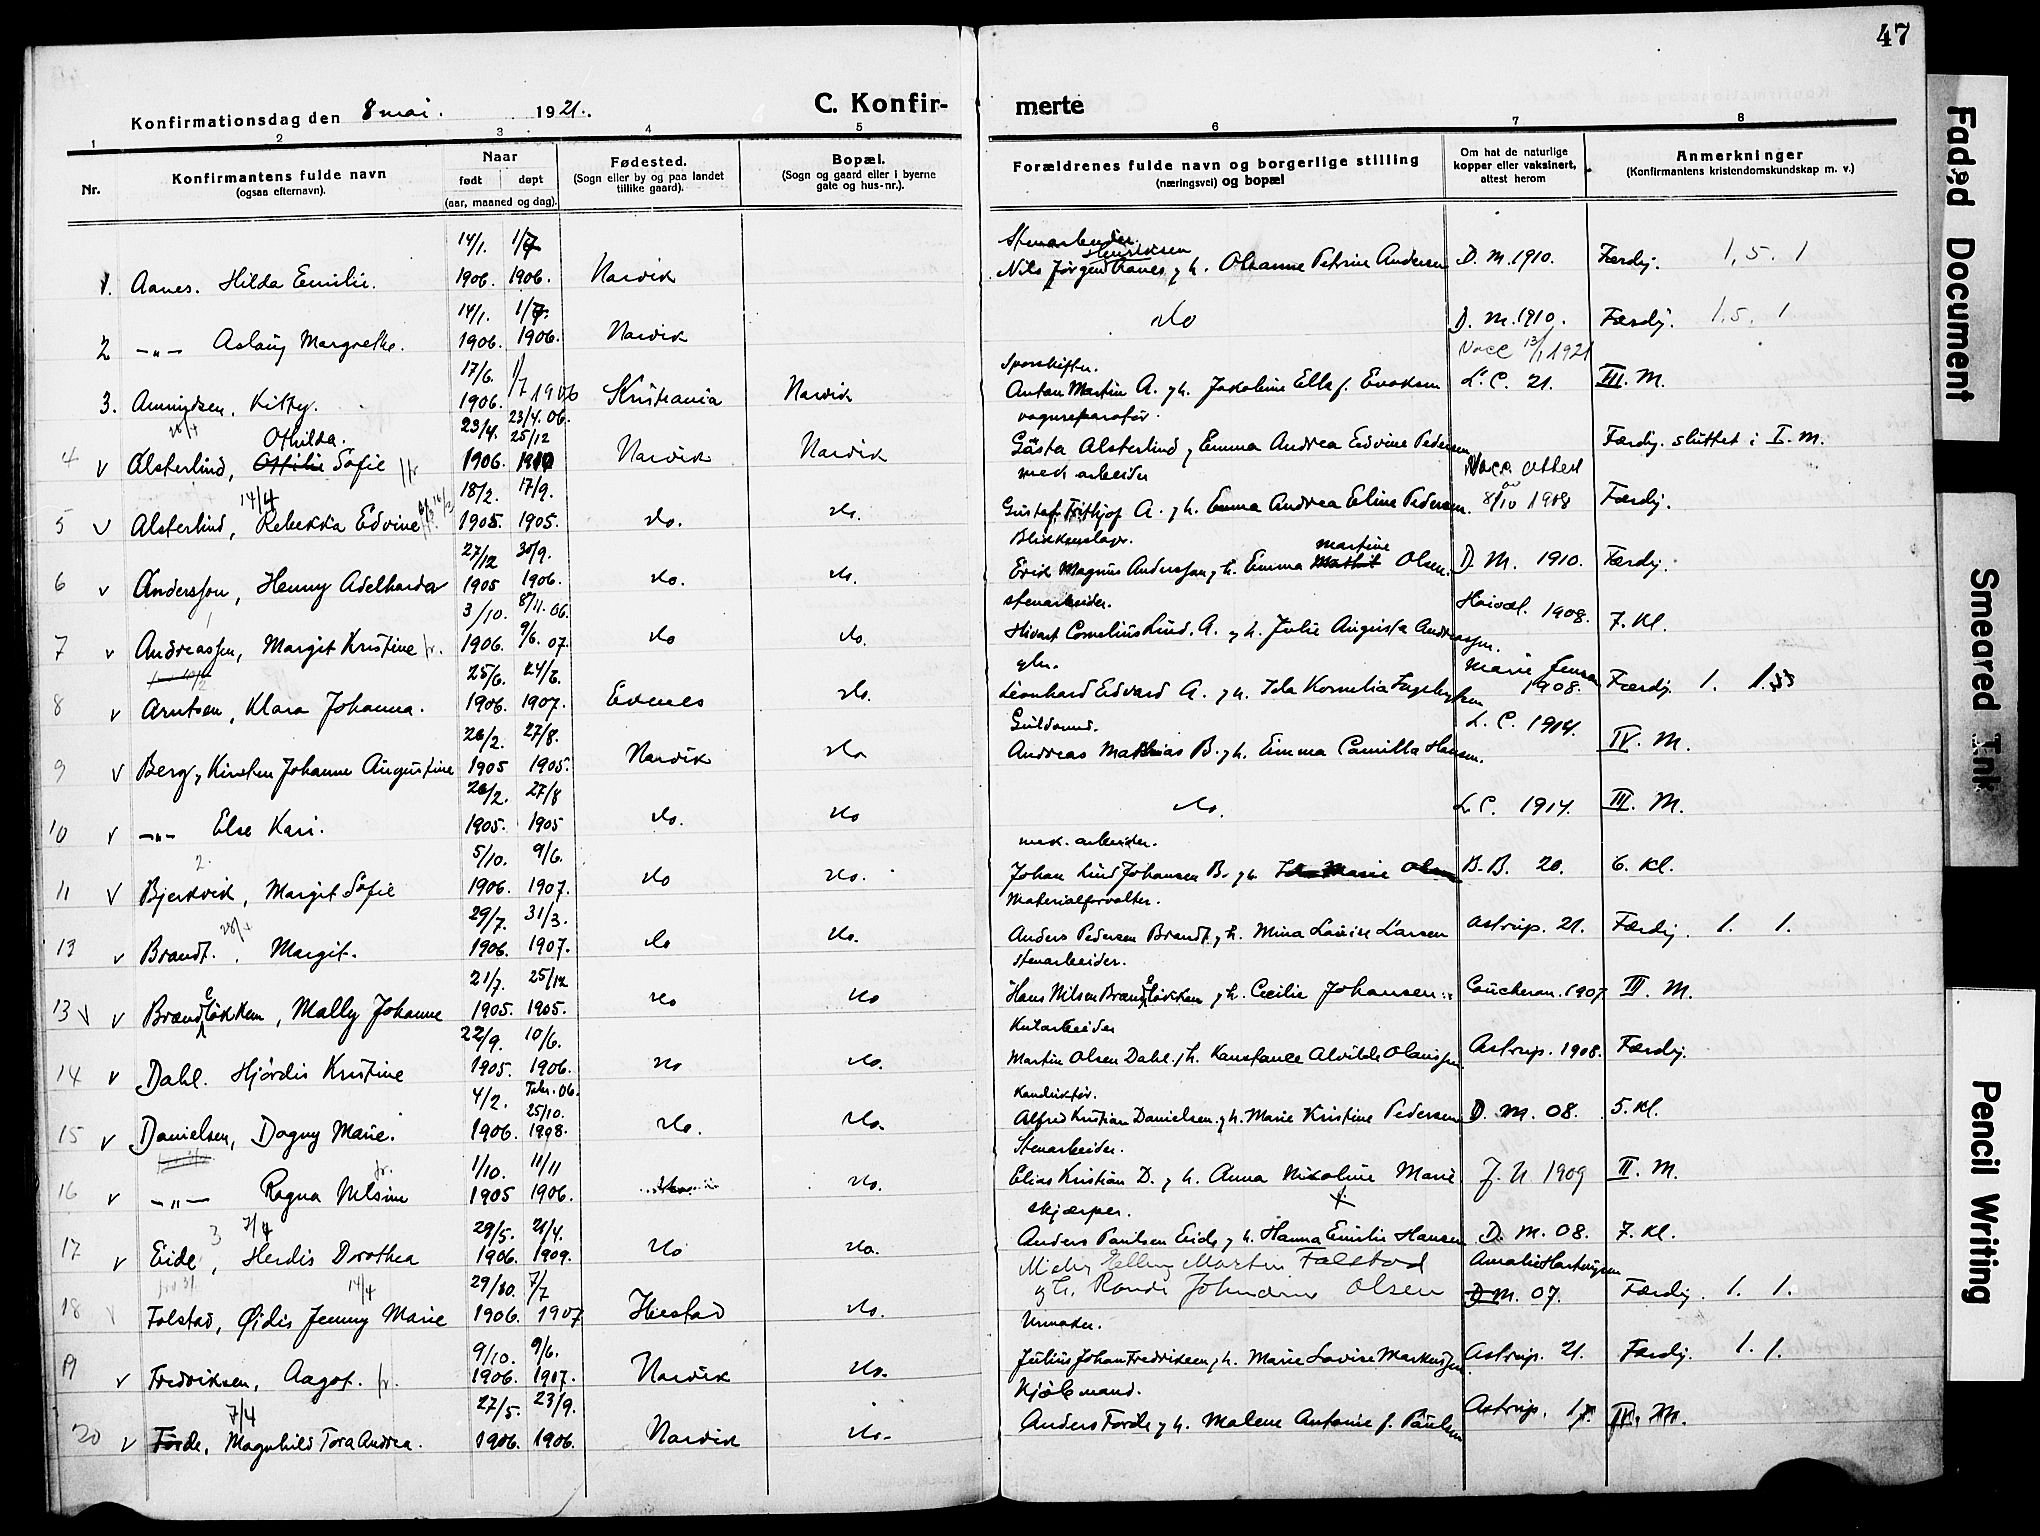 47
Konfirmationsdag den 8 mai. 1921.
C. Konfirmerte
1 2 3 4 5 6 7 8
Nr.
Konfirmantens fulde navn
(ogsaa efternavn).
Naar
født døpt
(aar, maaned og dag).
Fødested.
(Sogn eller by og paa landet
tillike gaard).
Bopæl.
(Sogn og gaard eller i byerne
gate og hus-nr.).
Forældrenes fulde navn og borgerlige stilling
(næringsvei) og bopæl
Om hat de naturlige
kopper eller vaksinert,
attest herom
Anmerkninger
(Konfirmantens kristendomskundskap m. v.)
14/1. 1/7 Stenarbeider. Henriksen
1. Aanes. Hilda Emilie. 1906. 1906. Narvik Nils Jørgen Aanes, g h. Olianne Petrine Andersen D. M. 1910. Færdig. 1, 5. 1
14/1. 1/7.
2 -"- Aslaug Margrethe. 1906. 1906. Narvik do D. M. 1910. Færdig. 1, 5. 1.
17/6. 1/7 1906 Sporskifter. Vacc 13/1 1921
3. Amundsen, Kitty. 1906. Kristiania Narvik Anton Martin A. g h. Jakobine Ells f. Evoksen L. C. 21. III. M.
23/4. 23/4. 06. 25/12 vognreparatør.
4 v Alsterlind, Othilda. Sofie 1906. Narvik Narvik Gösta Alsterlind, Emma Andrea Edvine Pedersen Færdig. sluttet i I. M.
14/4 18/2. 17/9. mek arbeider Vacc. attest
5 v Alsterlind, Rebekka Edvine 1905. 1905. do. do. Gustaf Frithjof A. g h. Emma Andrea Eline Pedersen. 8/10 1908 Færdig.
27/12 30/9. Blikkenslager. Martine
6 v Andersson, Henny Adelharda 1905 1906. do. do. Erik Magnus Andersson, g h. Emma Olsen. D. M. 1910. Færdig.
3/10. 8/11. 06. stenarbeider.
7 v Andreassen, Margit Kristine fr. 1906. 9/6. 07. do do. Hivart Cornelius Lind. A. g h. Julie Augusta Andreassen. 1908. 7. Kl.
25/6. 24/3. Marie Jensen
8 v Arntsen, Klara Johanna. 1906. 1907. Evenes do. Leonhard Edvard A. g h. Ida Kornelia Ingebrigtsen 1908. Færdig. 1. 1.
26/2. 27/8. Guldsmed.
9 v Berg, Kirsten Johanne Augustine 1905 1905. Narvik do Andreas Mathias B. g h. Emma Camilla Hansen. L. C. 1914. IV. M.
26/2. 27/8
10 v -"- Else Kari. 1905. 1905 do. do do. L C. 1914. III. M.
2. 5/10. 9/6. mek. arbeider.
11 v Bjerkvik, Margit Sofie 1906. 1907. do do. Johan Lind Johansen B. g h. Ida Marie Olsen B. B. 20. 6. Kl.
29/7. 31/3. Materialforvalter.
13 v Brandt. Margit. 1906. 1907. do do. Anders Pedersen Brandt. g h. Mina Lovise Larsen Astrup. 21. Færdig. 1. 1.
21/7. 25/12 stenarbeider.
13 v v Brændeløkken, Mally Johanne 1905. 1905. do do Hans Nilsen Brændeløkken g h. Cecilie Johansen Coucheron. 1907 III. M.
22/9. 10/6. Kularbeider
14 v Dahl. Hjørdis Kristine 1905. 1906. do do. Martin Olsen Dahl. g h. Konstance Alvilde Olaussen. Astrup. 1908. Færdig.
4/2. Febr. 06. 25/10. Konduktør.
15 v Danielsen, Dagny Marie. 1906. 1908. do. do. Alfred Kristian Danielsen. g h. Marie Kristine Pedersen D. M. 08. 5. Kl.
1/10. 11/11 Stenarbeider.
16 v -"- Ragna Nilsine fr. 1905 1906. do. Elias Kristian D. g h. Anna Nikoline Marie J. N 1909 II. M.
3 7/4 29/5. 21/4. skjærper.
17 v Eide, Herdis Dorothea 1906. 1909. do do. Anders Paulsen Eide g h. Hanna Emilie Hansen D. M. 08. 7. Kl.
14/4 29/10. 7/7 Elling Martin Falstad Amalie Hartvigsen
18 Falstad, Øidis Jenny Marie 1906. 1907 do. g h. Randi Johndine Olsen D M. 07. Færdig. 1. 1.
9/10. 9/6. Urmaker.
19 v Fredriksen, Aagot. fr. 1906. 1907. Narvik do. Julius Johan Fredriksen g h. Marie Lovise Markussen Astrup. 21. Færdig. 1. 1.
7/4 27/5. 23/9. Kjøbmand.
20 v Forde, Magnhild Tora Andrea. 1906. 1906. Narvik do. Anders Forde g h. Malene Antonie f. Paulsen Astrup. IV. M.
Faded Document
Smeared Ink
Pencil Writing